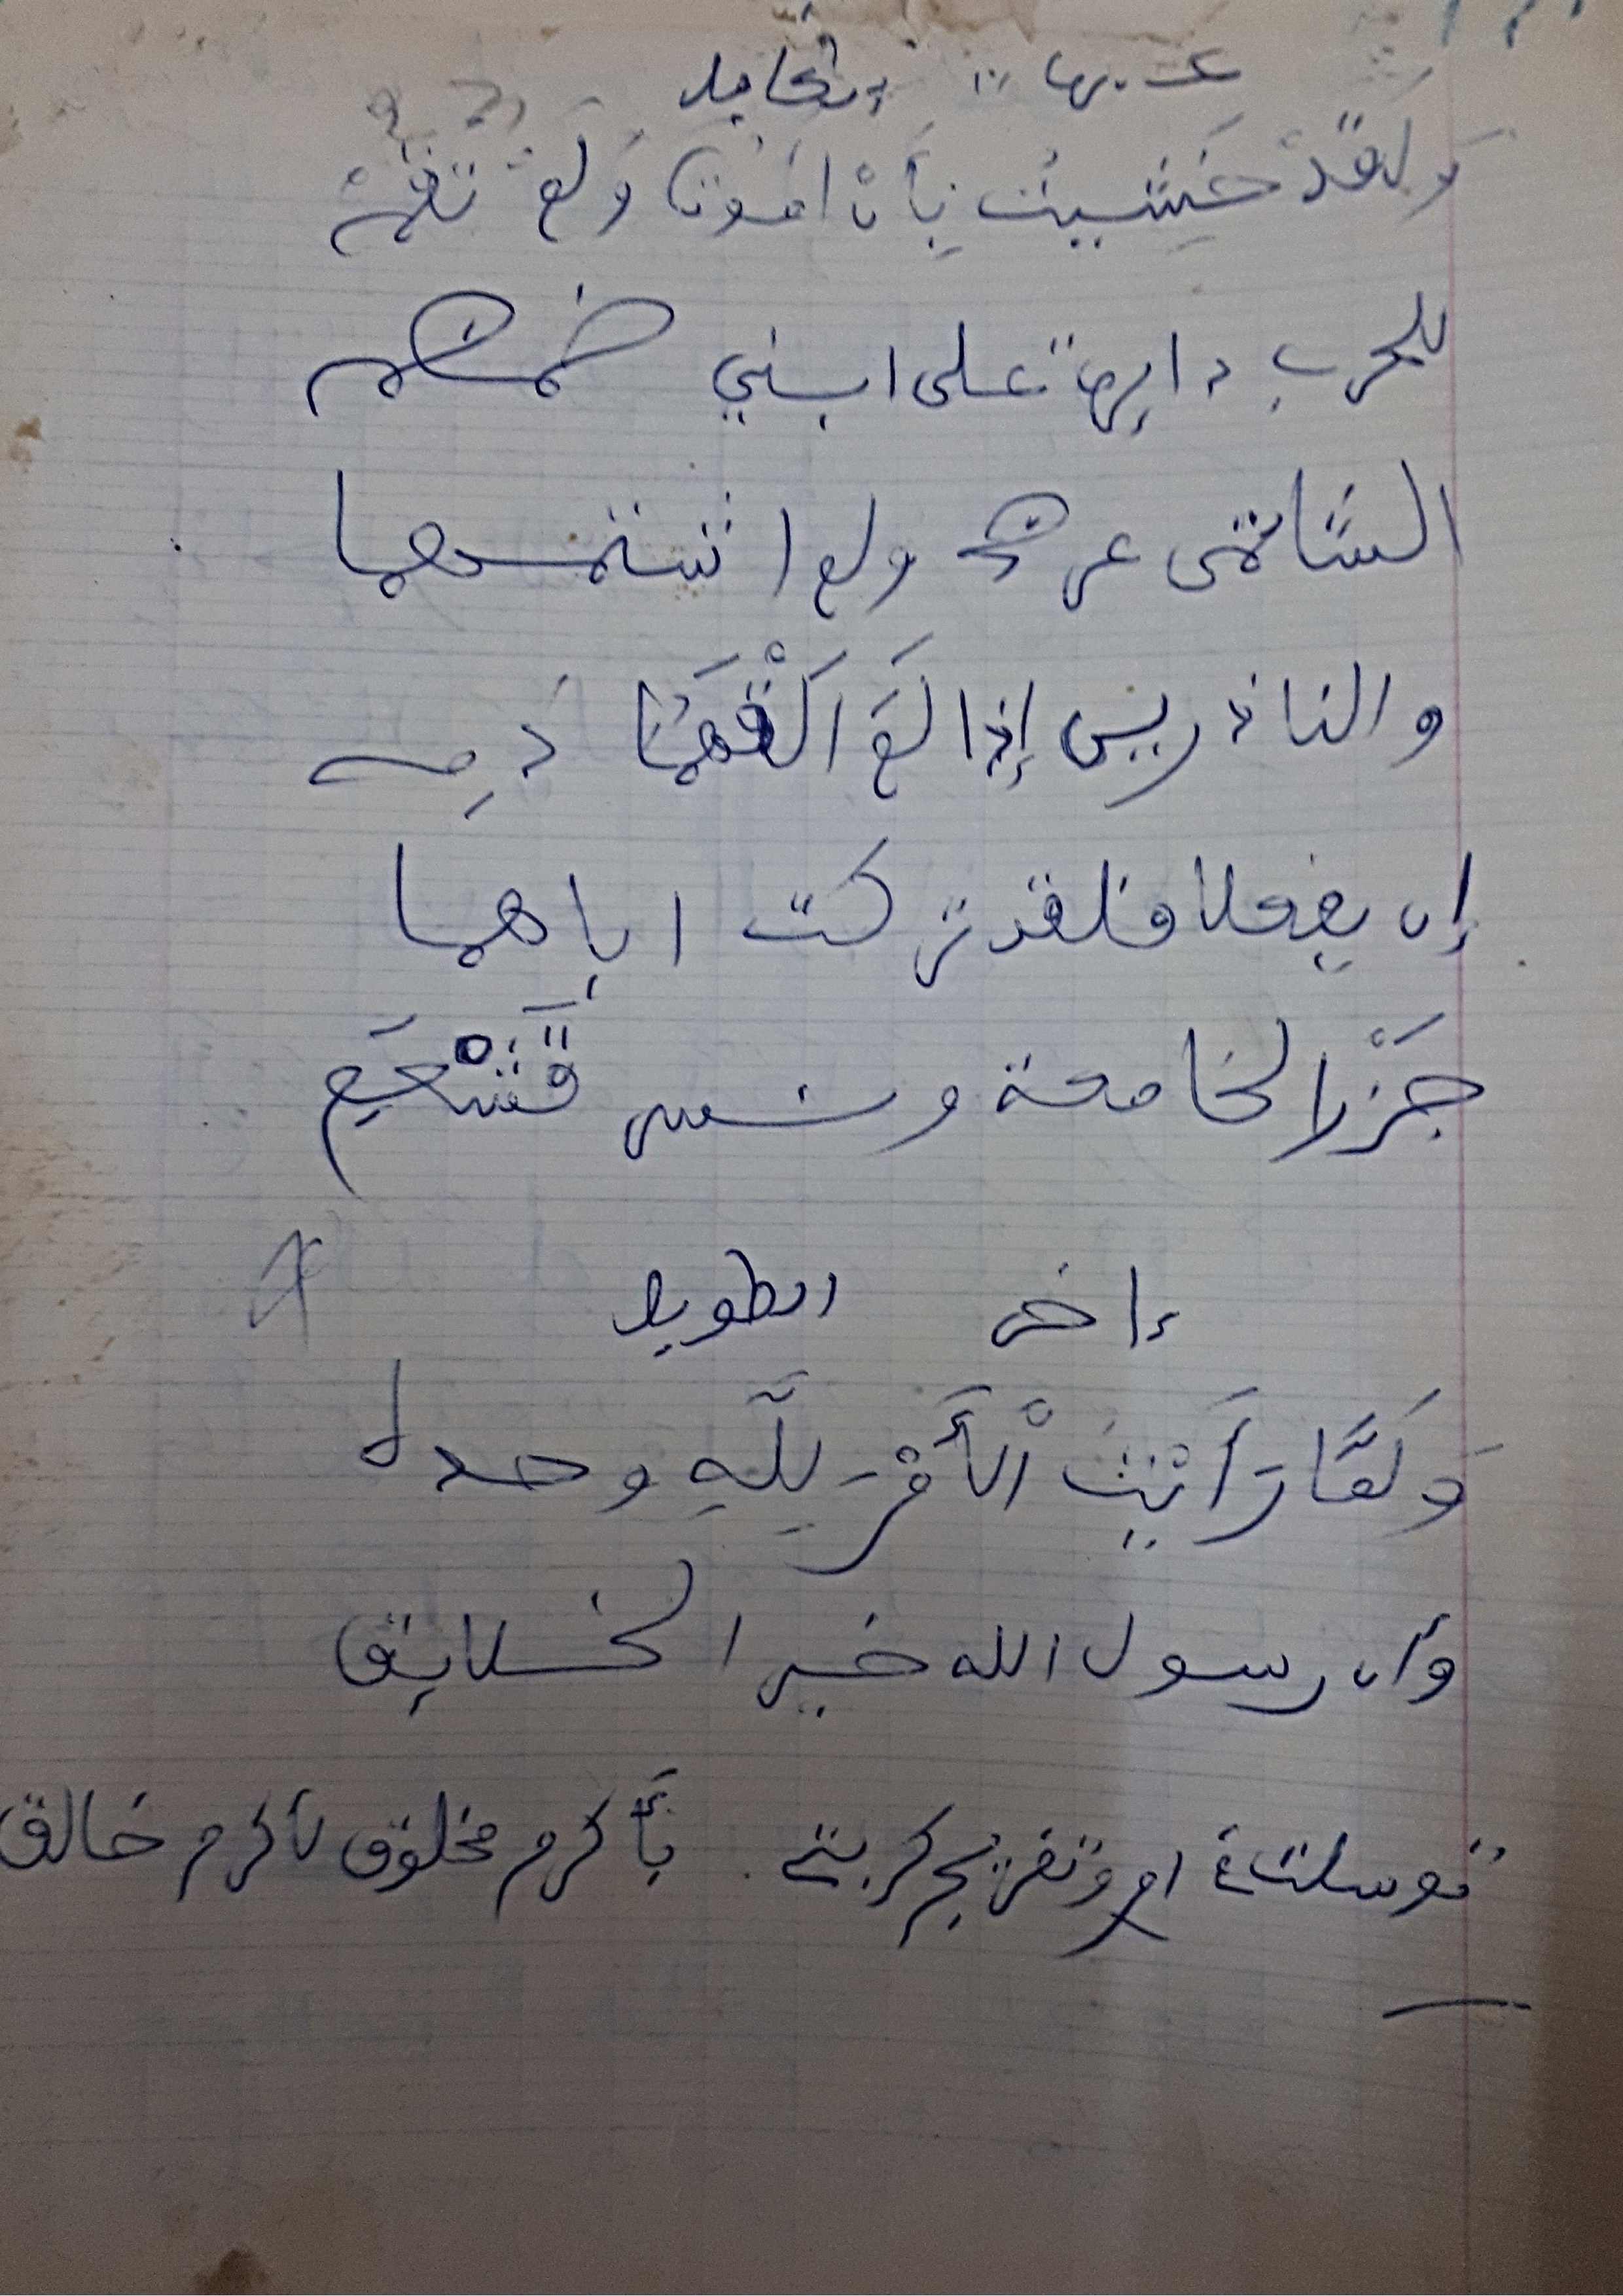 الكامل
وَلَقَدْ خَشِيتُ بِأَنْ أَمُوتَ وَلَمْ تَقُمْ
للحرب دايرة على ابني ضمضم
الشاتمى عرضى ولم اشتمهما
والناذرين إذا لَمَ اَلْقَهُمَا دَمِى
إن يفعلا فلقد تركت اباهما
جَزْر الخامعة ونسر قَشْعَمِ
ءاخر الطويل
وَلَمَّا رَأَيْتُ اْلأَمْرَ لِلَّهِ وحده
وأن رسول الله خير الخلايق
توسلت في وتفريج كربتي بأَكرم مخلوق لأكرم خالق